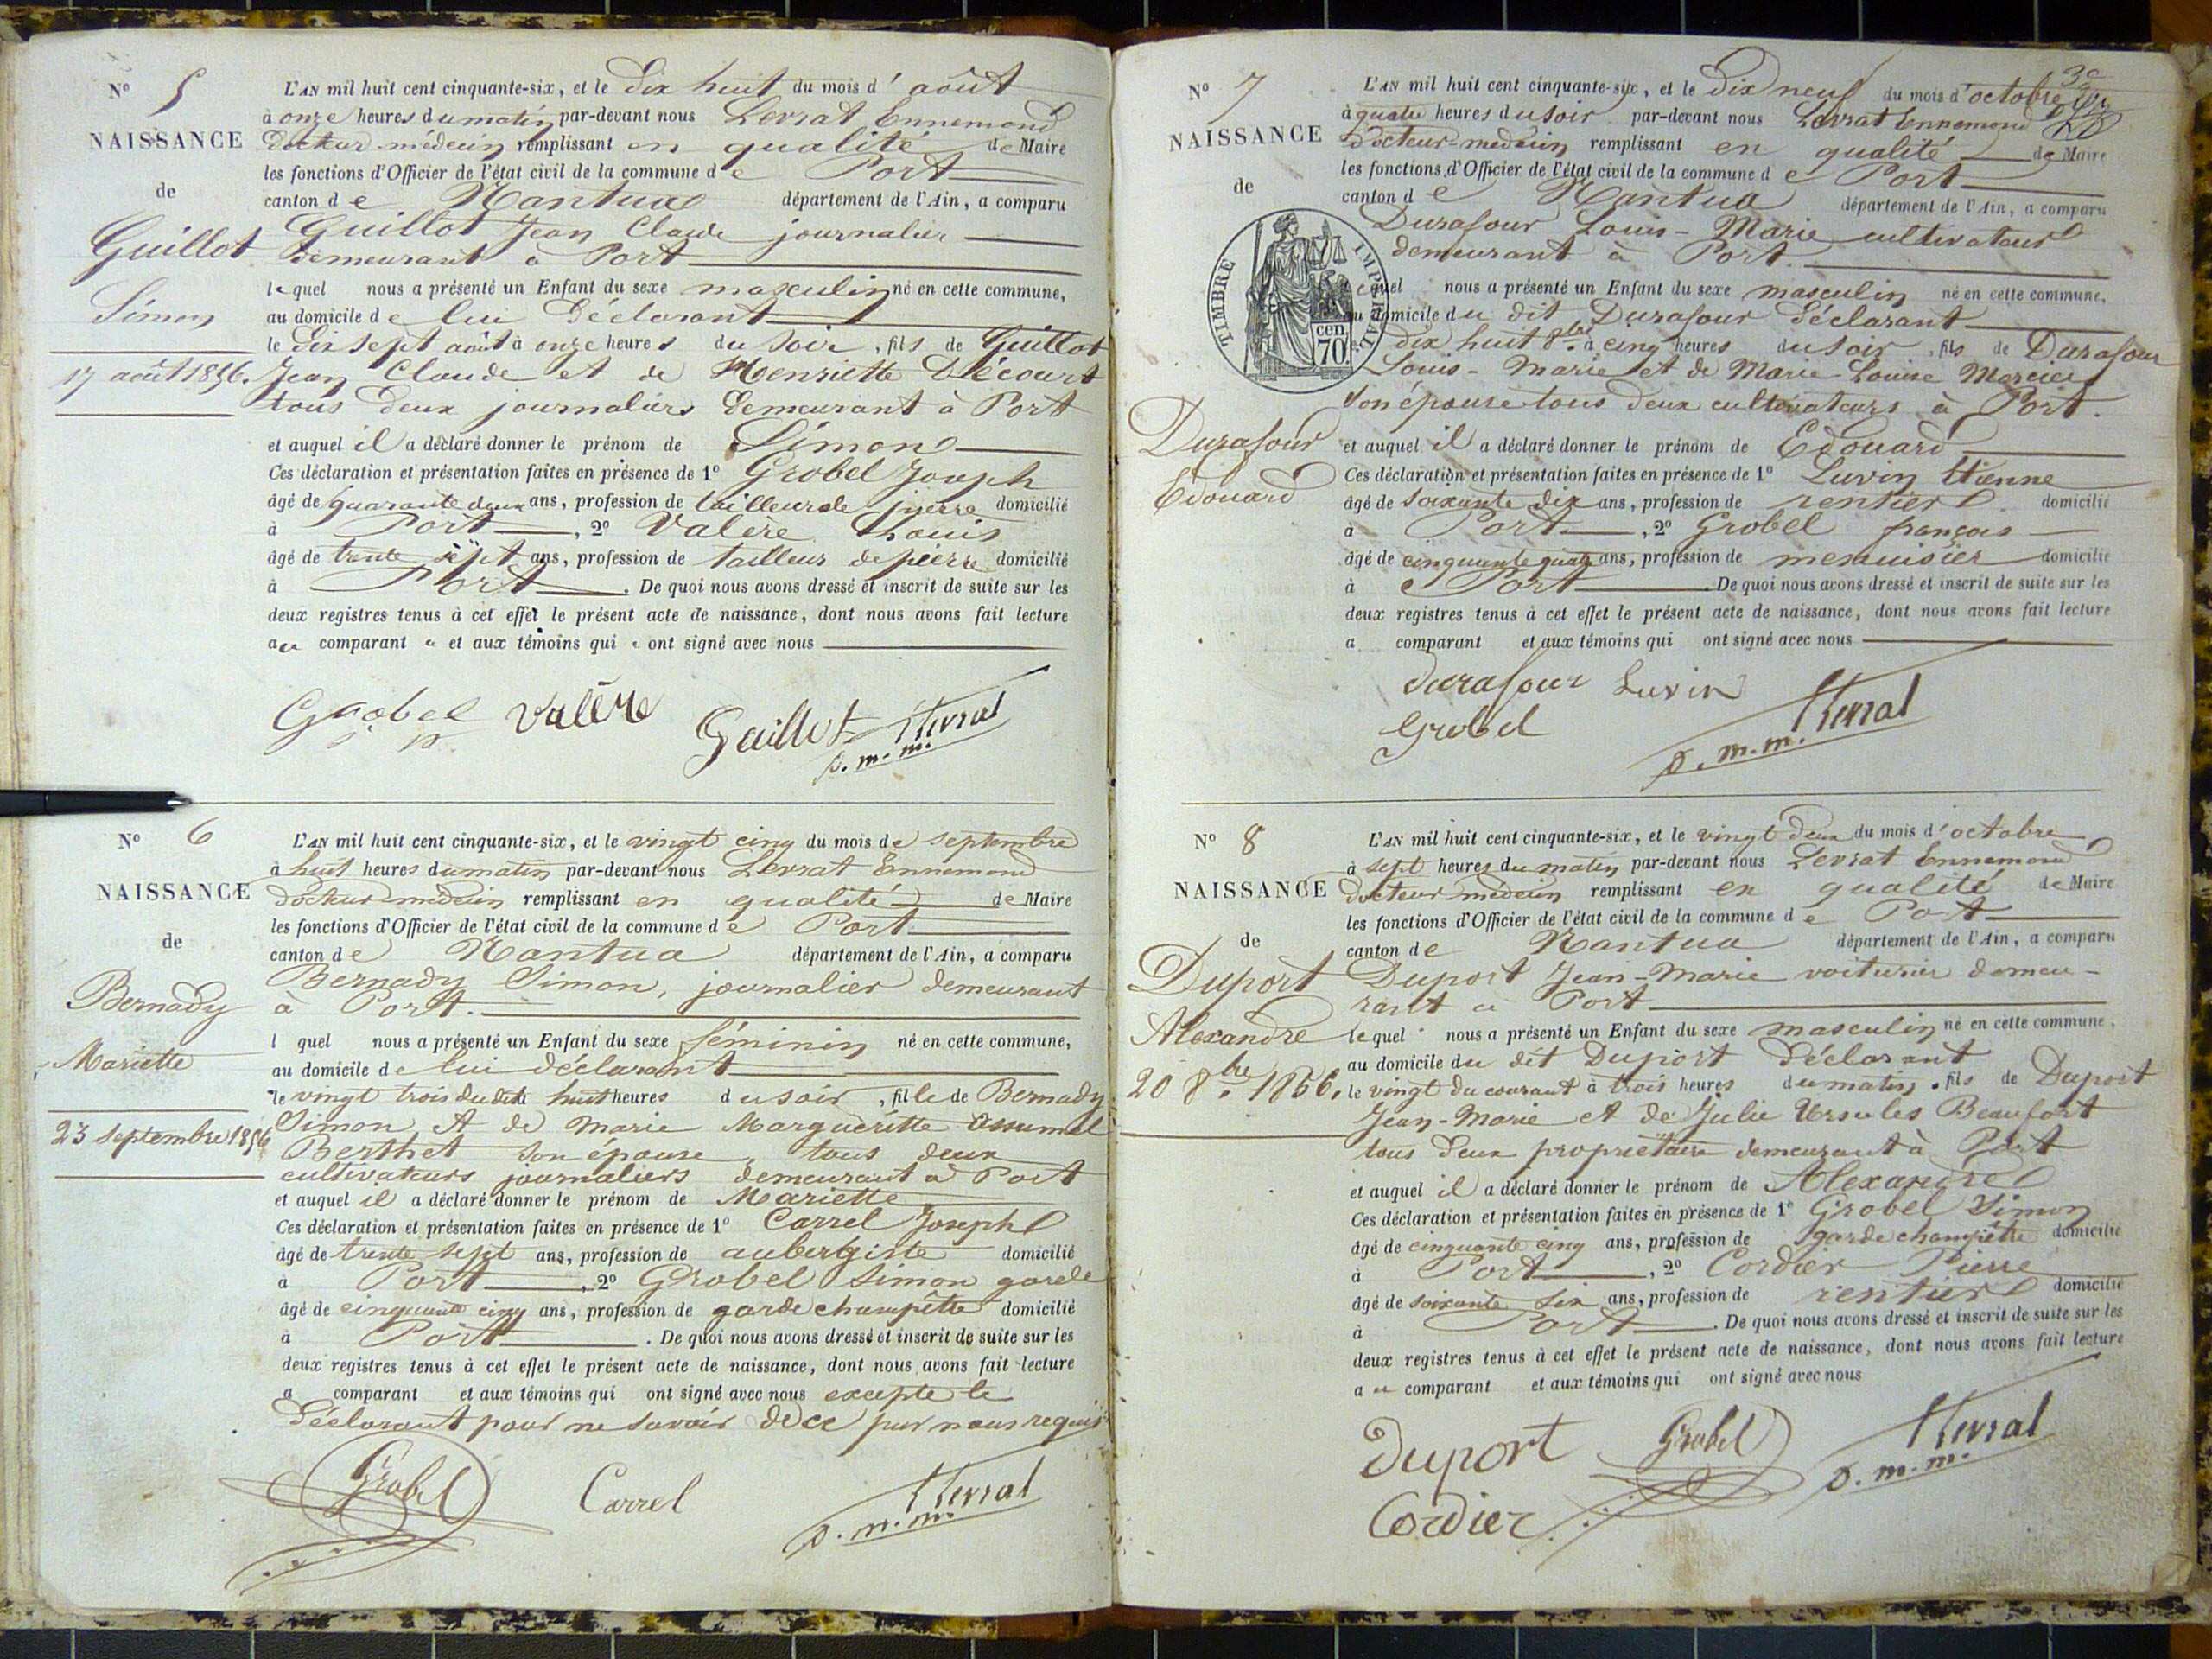 N° 5
NAISSANCE
de
Guillot
Simon
17 août 1856.
L'AN mil huit cent cinquante-six, et le Dix huit du mois d'août
à onze heures du matin par-devant nous Levrat Ennemond
docteur-médecin remplissant en qualité de Maire
les fonctions d'Officier de l'état civil de la commune de Port
canton de Nantua département de l'Ain, a comparu
Guillot Jean Claude journalier
demeurant à Port
lequel nous a présenté un Enfant du sexe masculin né en cette commune,
au domicile de lui Déclarant
le dix sept août à onze heures du soir, fils de Guillot
Jean Claude et de Henriette Décourt
tous deux journaliers demeurant à Port
et auquel il a déclaré donner le prénom de Simon
Ces déclaration et présentation faites en présence de 1° Grobel Joseph
âgé de quarante deux ans, profession de tailleur de pierre domicilié
à Port, 2° Valère Louis
âgé de trente sept ans, profession de tailleur de pierre domicilié
à Port. De quoi nous avons dressé et inscrit de suite sur les
deux registres tenus à cet effet le présent acte de naissance, dont nous avons fait lecture
au comparant et aux témoins qui ont signé avec nous
Grobel Valère Guillot Levrat
d. m. m.
N° 6
NAISSANCE
de
Bernady
Mariette
23 septembre 1856
L'AN mil huit cent cinquante-six, et le vingt cinq du mois de septembre
à huit heures du matin par-devant nous Levrat Ennemond
docteur médecin remplissant en qualité de Maire
les fonctions d'Officier de l'état civil de la commune de Port
canton de Nantua département de l'Ain, a comparu
Bernady Simon, journalier demeurant
à Port.
l quel nous a présenté un Enfant du sexe féminin né en cette commune,
au domicile de lui déclarant
le vingt trois dudit à huit heures du soir, fille de Bernady
Simon et de Marie Marguéritte Assumel
Berthet son épouse, tous deux
cultivateurs journaliers demeurant à Port
et auquel il a déclaré donner le prénom de Mariette
Ces déclaration et présentation faites en présence de 1° Carrel Joseph
âgé de trente sept ans, profession de aubergiste domicilié
à Port, 2° Grobel Simon garde
âgé de cinquante cinq ans, profession de garde champêttre domicilié
à Port. De quoi nous avons dressé et inscrit de suite sur les
deux registres tenus à cet effet le présent acte de naissance, dont nous avons fait lecture
a comparant et aux témoins qui ont signé avec nous excepté le
Déclarant pour ne savoir de ce par nous requis
Grobel Carrel Levrat
d. m. m.
N° 7
NAISSANCE
de
TIMBRE IMPÉRIAL
70 cen.
Durafour
Edouard
L'AN mil huit cent cinquante-six, et le Dix neuf du mois d'octobre
à quatre heures du soir par-devant nous Levrat Ennemond
Docteur-médecin remplissant en qualité de Maire
les fonctions d'Officier de l'état civil de la commune de Port
canton de Nantua département de l'Ain, a comparu
Durafour Louis-Marie cultivateur
demeurant à Port
lequel nous a présenté un Enfant du sexe masculin né en cette commune,
au domicile du dit Durafour déclarant
dix huit 8bre à cinq heures du soir, fils de Durafour
Louis-Marie et de Marie-Louise Mercier
son épouse tous deux cultivateurs à Port.
et auquel il a déclaré donner le prénom de Edouard
Ces déclaration et présentation faites en présence de 1° Luvin Etienne
âgé de soixante dix ans, profession de rentier domicilié
à Port, 2° Grobel françois
âgé de cinquante quatre ans, profession de menuisier domicilié
à Port. De quoi nous avons dressé et inscrit de suite sur les
deux registres tenus à cet effet le présent acte de naissance, dont nous avons fait lecture
a comparant et aux témoins qui ont signé avec nous
durafour Luvin
Grobel Levrat
d. m. m.
N° 8
NAISSANCE
de
Duport
Alexandre
20 8bre 1856.
L'AN mil huit cent cinquante-six, et le vingt deux du mois d'octobre
à sept heures du matin par-devant nous Levrat Ennemond
docteur médecin remplissant en qualité de Maire
les fonctions d'Officier de l'état civil de la commune de Port
canton de Nantua département de l'Ain, a comparu
Duport Jean-Marie voiturier demeu-
rant à Port
lequel nous a présenté un Enfant du sexe masculin né en cette commune,
au domicile du dit Duport déclarant
le vingt du courant à trois heures du matin, fils de Duport
Jean-Marie et de Julie Ursules Beaufort
tous deux propriétaire demeurant à Port
et auquel il a déclaré donner le prénom de Alexandre
Ces déclaration et présentation faites en présence de 1° Grobel Simon
âgé de cinquante cinq ans, profession de garde champêtre domicilié
à Port, 2° Cordier Pierre
âgé de soixante six ans, profession de rentier domicilié
à Port. De quoi nous avons dressé et inscrit de suite sur les
deux registres tenus à cet effet le présent acte de naissance, dont nous avons fait lecture
au comparant et aux témoins qui ont signé avec nous
Duport Grobel Levrat
Cordier d. m. m.